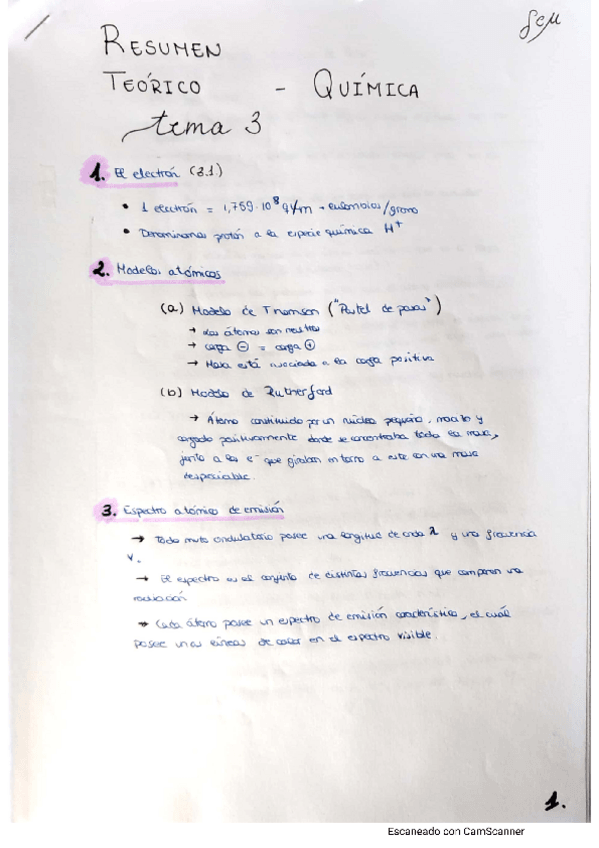 RESUMEN
TEÓRICO - QUÍMICA
tema 3
1. El electrón (3.1)
• 1 electrón = 1,759·10⁸ q/m → culombios/gramo
• Denominamos protón a la especie química H⁺
2. Modelos atómicos
(a) Modelo de Thomson ("Pastel de pasas")
→ Los átomos son neutros
→ carga ⊖ = carga ⊕
→ Masa está asociada a la carga positiva
(b) Modelo de Rutherford
→ Átomo constituido por un núcleo pequeño, macizo y
cargado positivamente donde se encontraba toda la masa,
junto a los e⁻ que giraban en torno a este con una masa
despreciable.
3. Espectro atómico de emisión
→ Todo mvto ondulatorio posee una longitud de onda λ y una frecuencia
ν.
→ El espectro es el conjunto de distintas frecuencias que componen una
radiación
→ Cada átomo posee un espectro de emisión característico, el cuál
posee unas líneas de color en el espectro visible.
1.
Escaneado con CamScanner